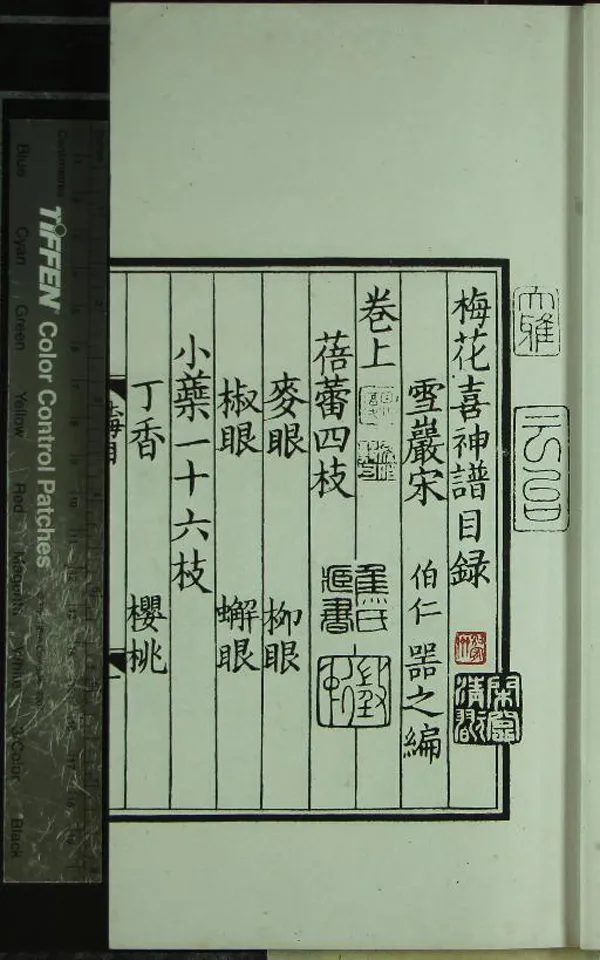 梅花喜神譜目録
雪巖宋 伯仁 器之編
卷上
蓓蕾四枝
麥眼 柳眼
椒眼 蠏眼
小蘂一十六枝
丁香 櫻桃
大雅
TIFFEN Color Control Patches
Centimetres
Blue Cyan Green Yellow Red Magenta White 3/Color Black